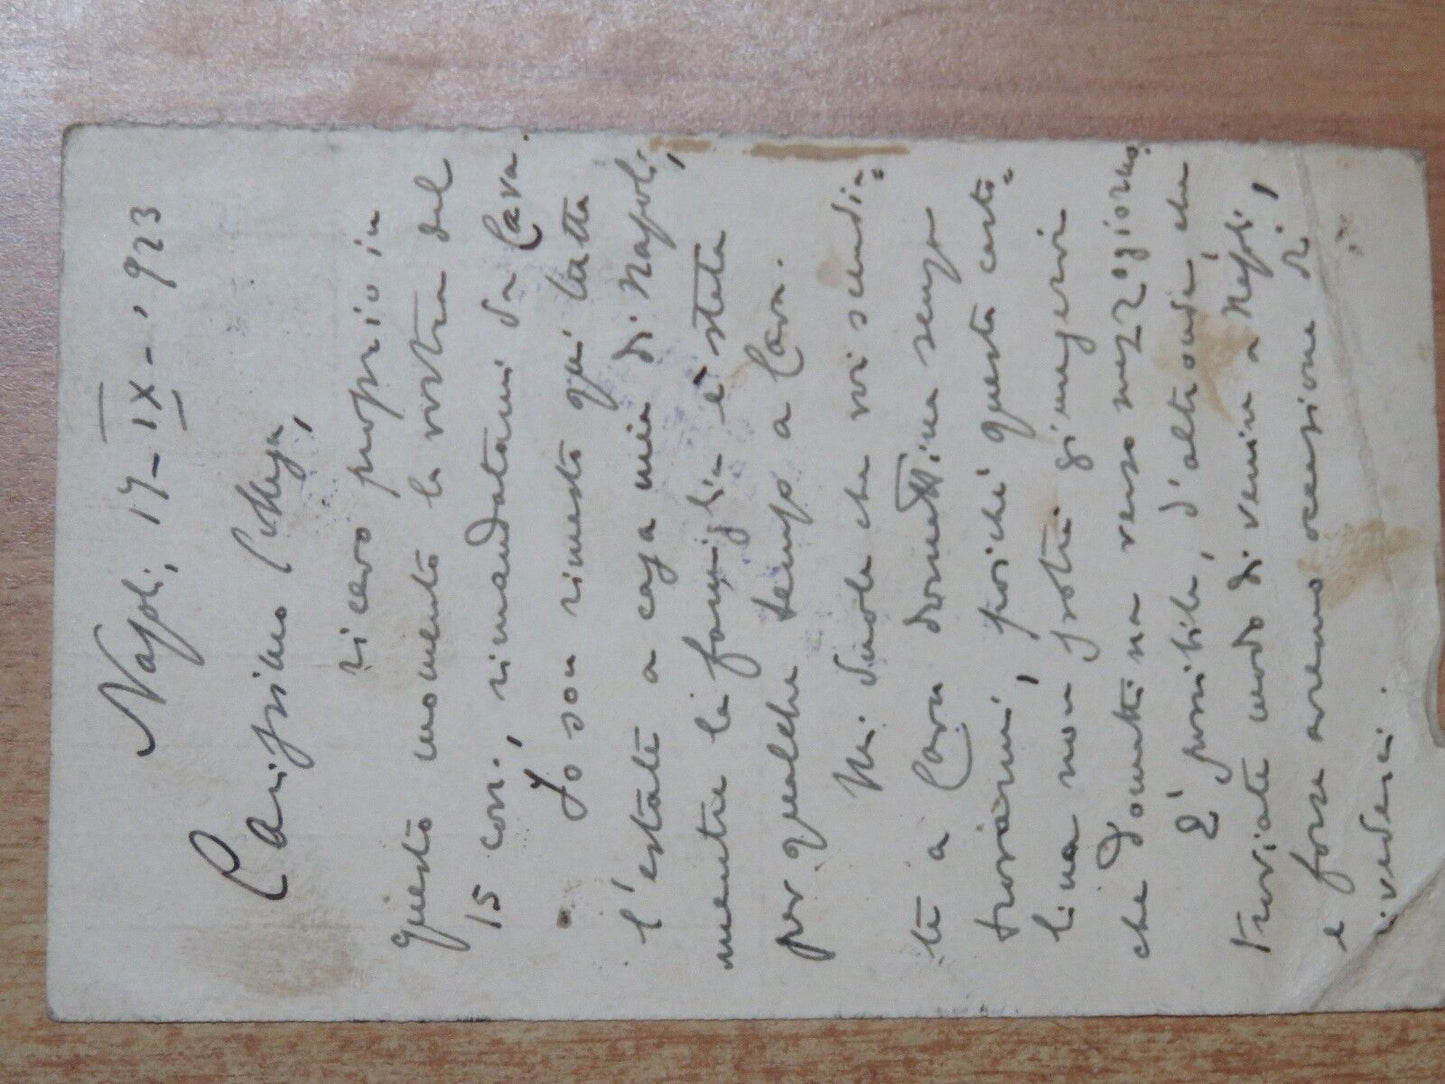 Napoli, 17-IX-'923
Carissimo Collega,
ricevo proprio in
questo momento la vostra del
15 corr., rimandatami da Cava.
Io son rimasto qui tutta
l'estate a casa mia di Napoli,
mentre la famiglia è stata
per qualche tempo a Cava.
Mi duole che voi scendia=
te a Cava domattina senza
trovarmi, poiché questa carto=
lina non potrà giungervi
che domattina verso mezzogiorno.
È possibile, d'altronde, che
troviate modo di venire a Napoli,
e forse avremo occasione di
rivederci.